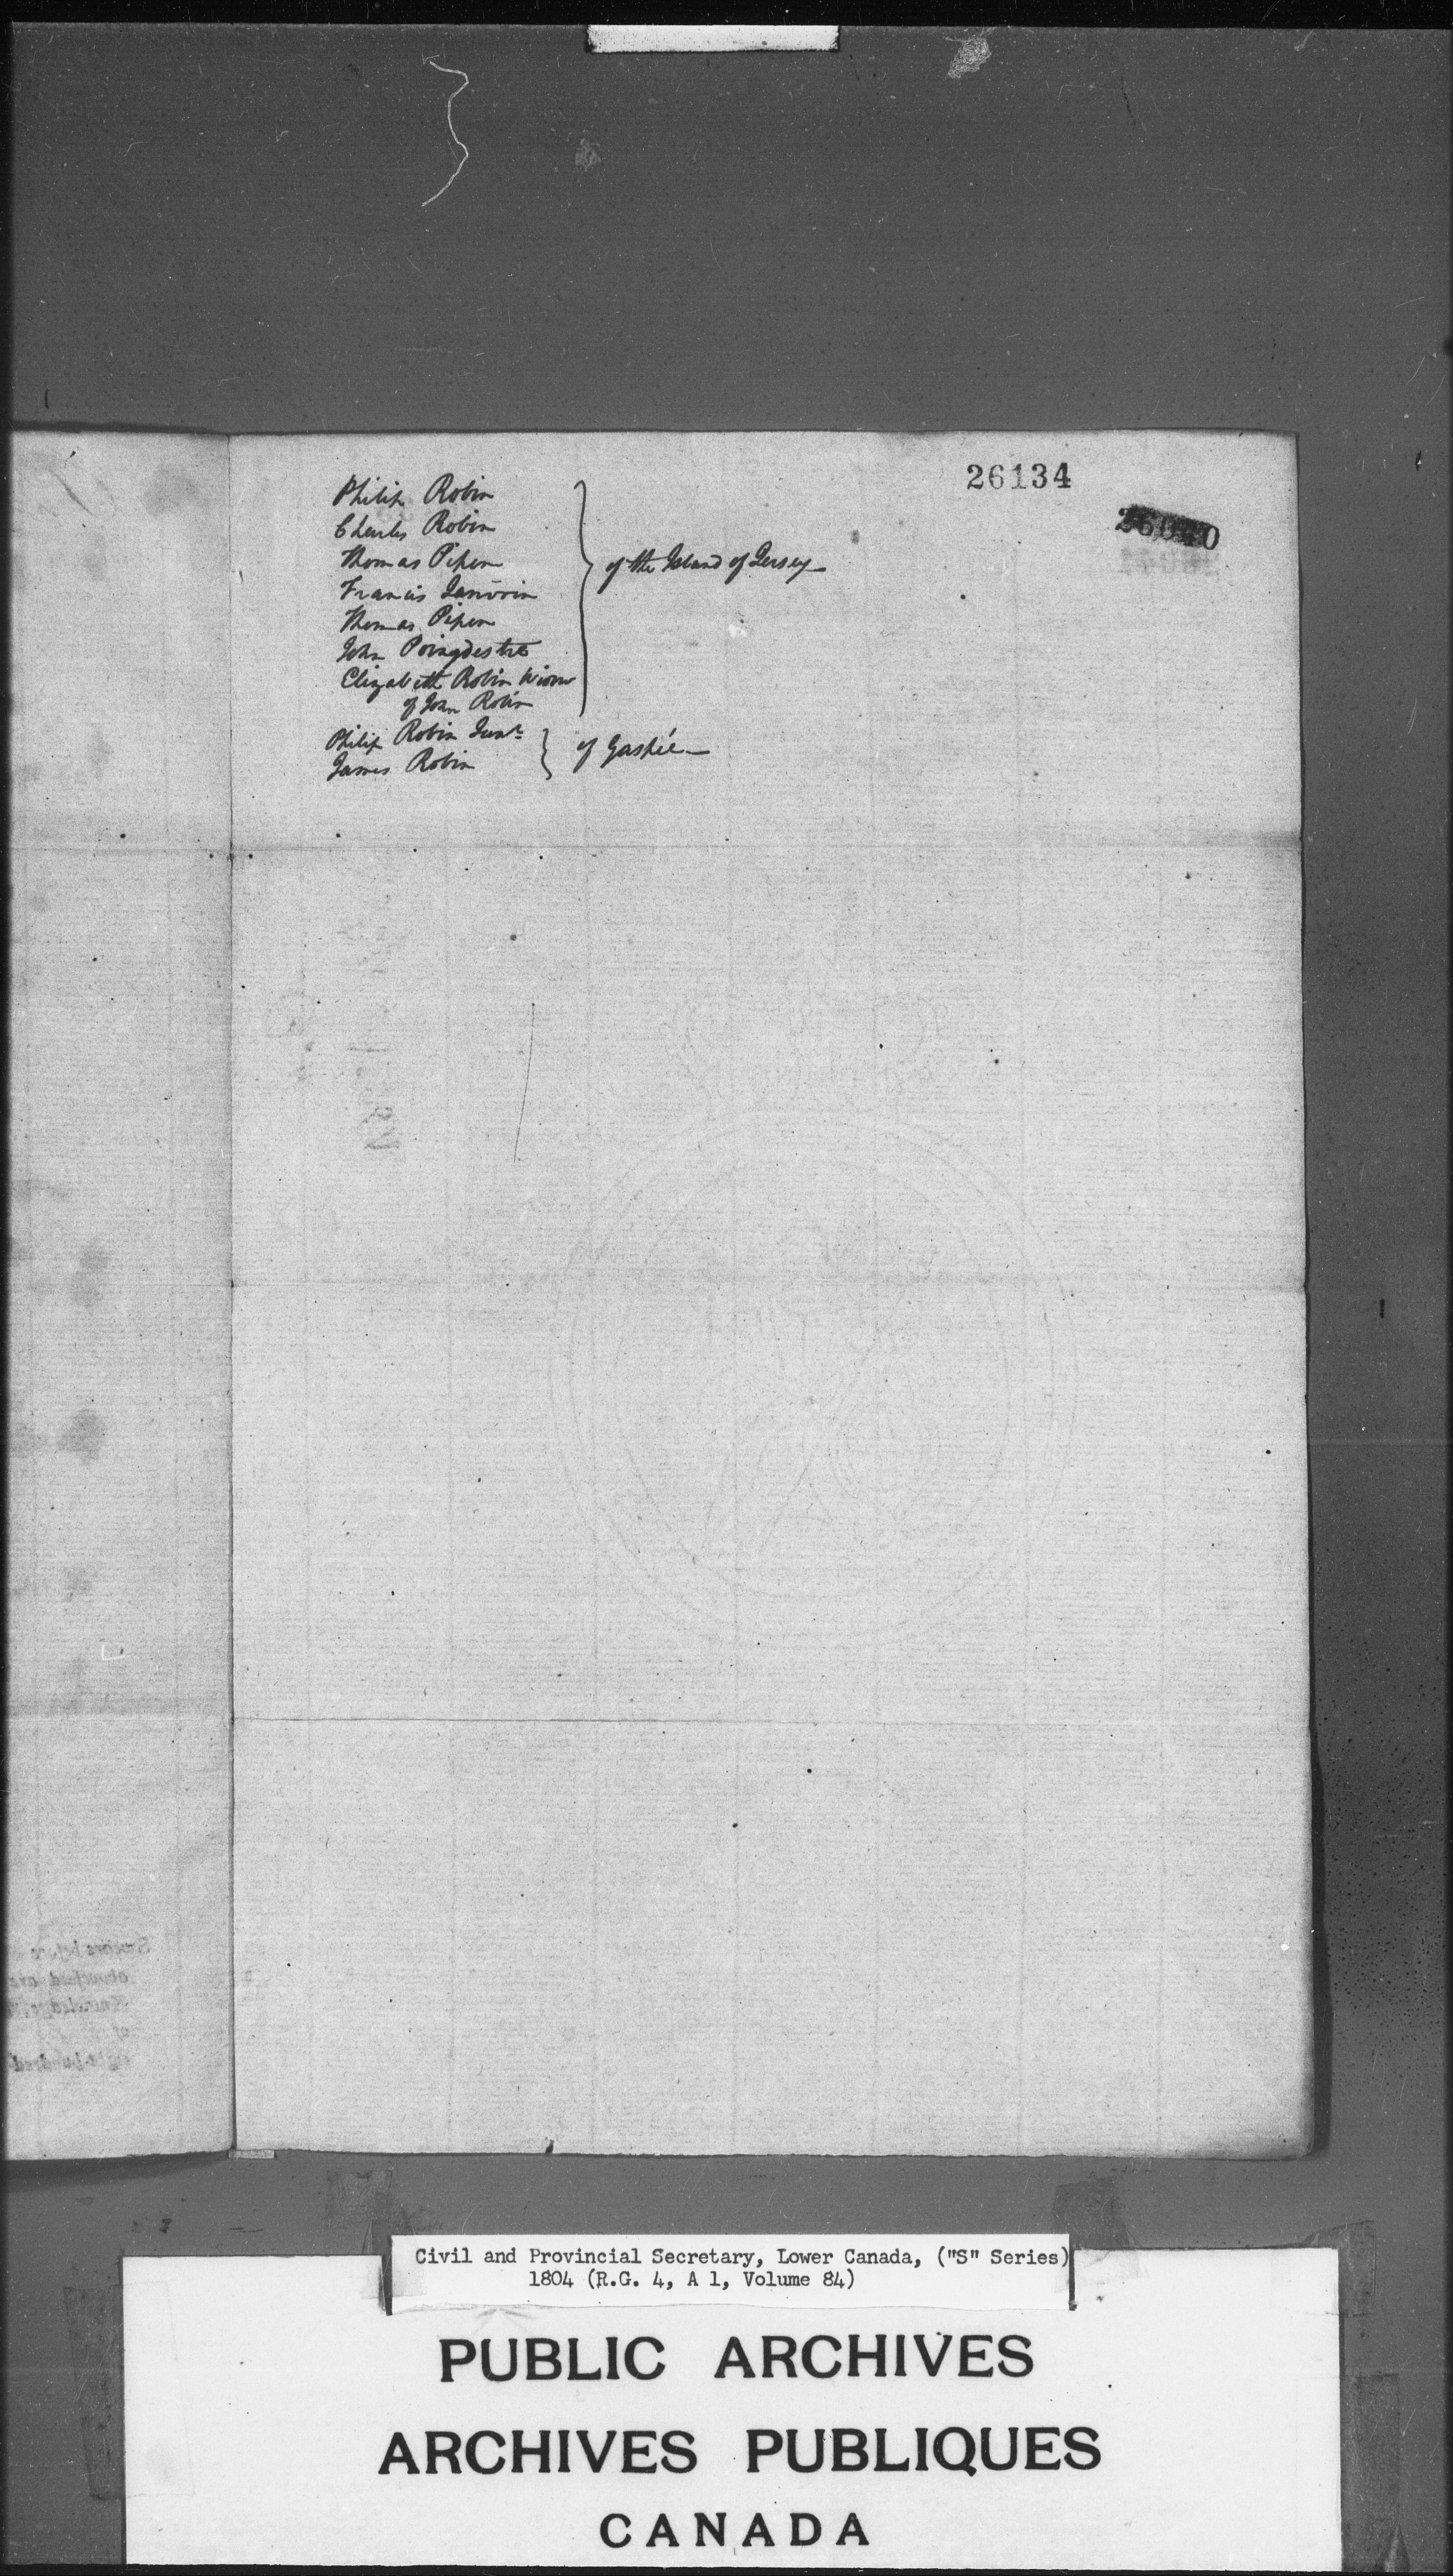 26134
Philip Robin
Charles Robin
Thomas Pipon
of the Island of Jersey
Francis Janvrin
Thomas Pipon
John Poingdestre
Elizabeth Robin Widow
of John Robin
Philip Robin Junr
of Gaspée
James Robin
Civil and Provincial Secretary, Lower Canada, ("S" Series)
1804 (R.G. 4, A 1, Volume 84)
PUBLIC ARCHIVES
ARCHIVES PUBLIQUES
CANADA